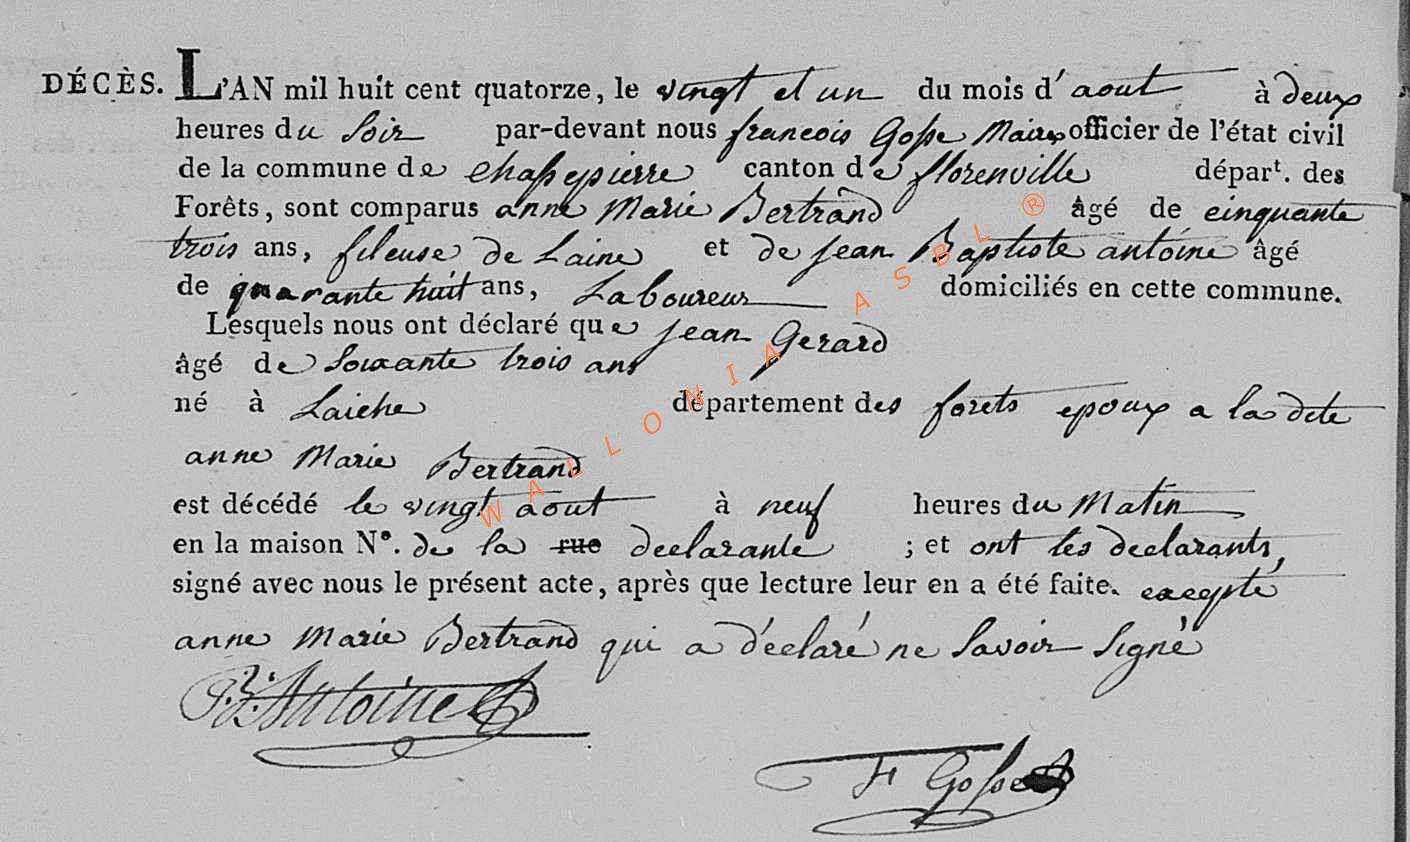 DÉCÈS. L'AN mil huit cent quatorze, le vingt et un du mois d'aout à deux
heures du Soir par-devant nous francois Gosse Maire officier de l'état civil
de la commune de Chassepierre canton de florenville départ. des
Forêts, sont comparus anne Marie Bertrand âgé de cinquante
trois ans, fileuse de Laine et de jean Baptiste antoine âgé
de quarante huit ans, Laboureur domiciliés en cette commune.
Lesquels nous ont déclaré que jean Gerard
âgé de Soixante trois ans
né à Laiche département des forets epoux a la dite
anne Marie Bertrand
est décédé le vingt aout à neuf heures du Matin
en la maison N°. de la rue declarante ; et ont les declarants,
signé avec nous le présent acte, après que lecture leur en a été faite. excepté
anne Marie Bertrand qui a déclaré ne Savoir Signé
J. B. Antoine
F Gosse
WALLONIA ASBL ®